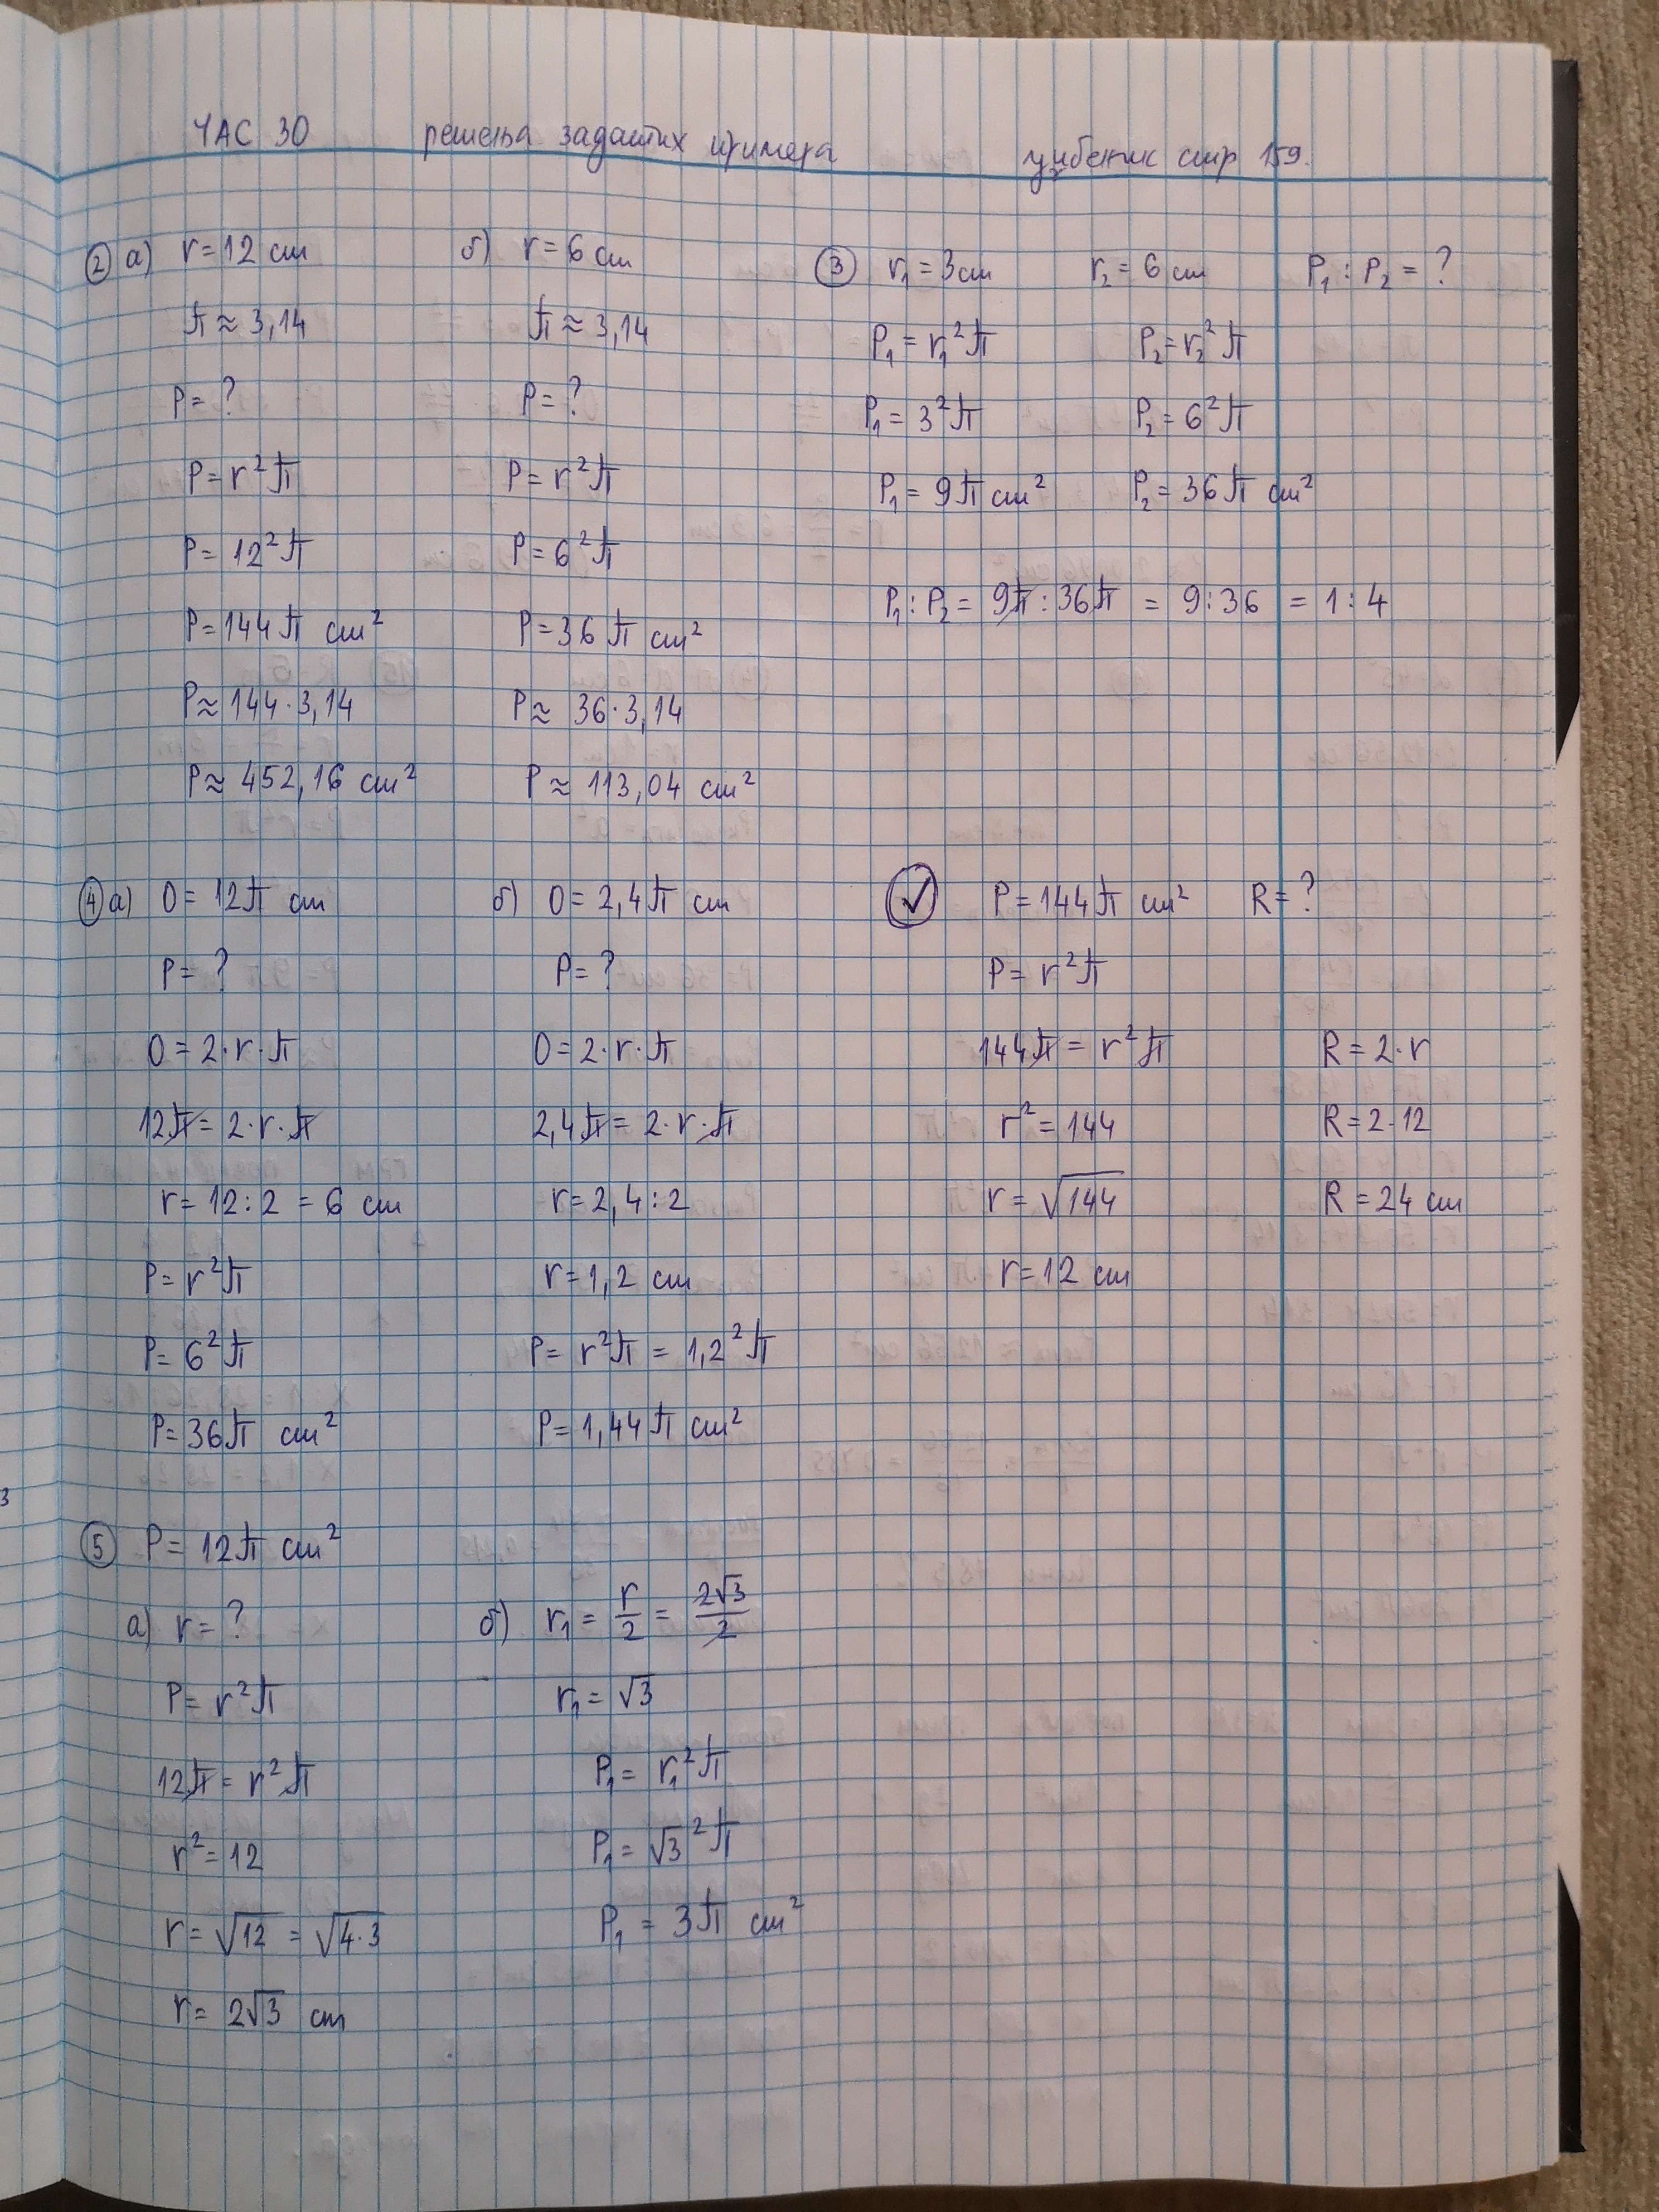 ЧАС 30 решења задатих примера уџбеник стр 159.
② а) r = 12 cm
π ≈ 3,14
P = ?
P = r²π
P = 12²π
P = 144π cm²
P ≈ 144 · 3,14
P ≈ 452,16 cm²
б) r = 6 cm
π ≈ 3,14
P = ?
P = r²π
P = 6²π
P = 36π cm²
P ≈ 36 · 3,14
P ≈ 113,04 cm²
③ r₁ = 3 cm r₂ = 6 cm P₁ : P₂ = ?
P₁ = r₁²π P₂ = r₂²π
P₁ = 3²π P₂ = 6²π
P₁ = 9π cm² P₂ = 36π cm²
P₁ : P₂ = 9π : 36π = 9 : 36 = 1 : 4
④ а) O = 12π cm
P = ?
O = 2 · r · π
12π = 2 · r · π
r = 12 : 2 = 6 cm
P = r²π
P = 6²π
P = 36π cm²
б) O = 2,4π cm
P = ?
O = 2 · r · π
2,4π = 2 · r · π
r = 2,4 : 2
r = 1,2 cm
P = r²π = 1,2²π
P = 1,44π cm²
✓ P = 144π cm² R = ?
P = r²π
144π = r²π R = 2 · r
r² = 144 R = 2 · 12
r = √144 R = 24 cm
r = 12 cm
⑤ P = 12π cm²
а) r = ?
P = r²π
12π = r²π
r² = 12
r = √12 = √4·3
r = 2√3 cm
б) r₁ = r/2 = 2√3/2
r₁ = √3
P₁ = r₁²π
P₁ = √3²π
P₁ = 3π cm²
3